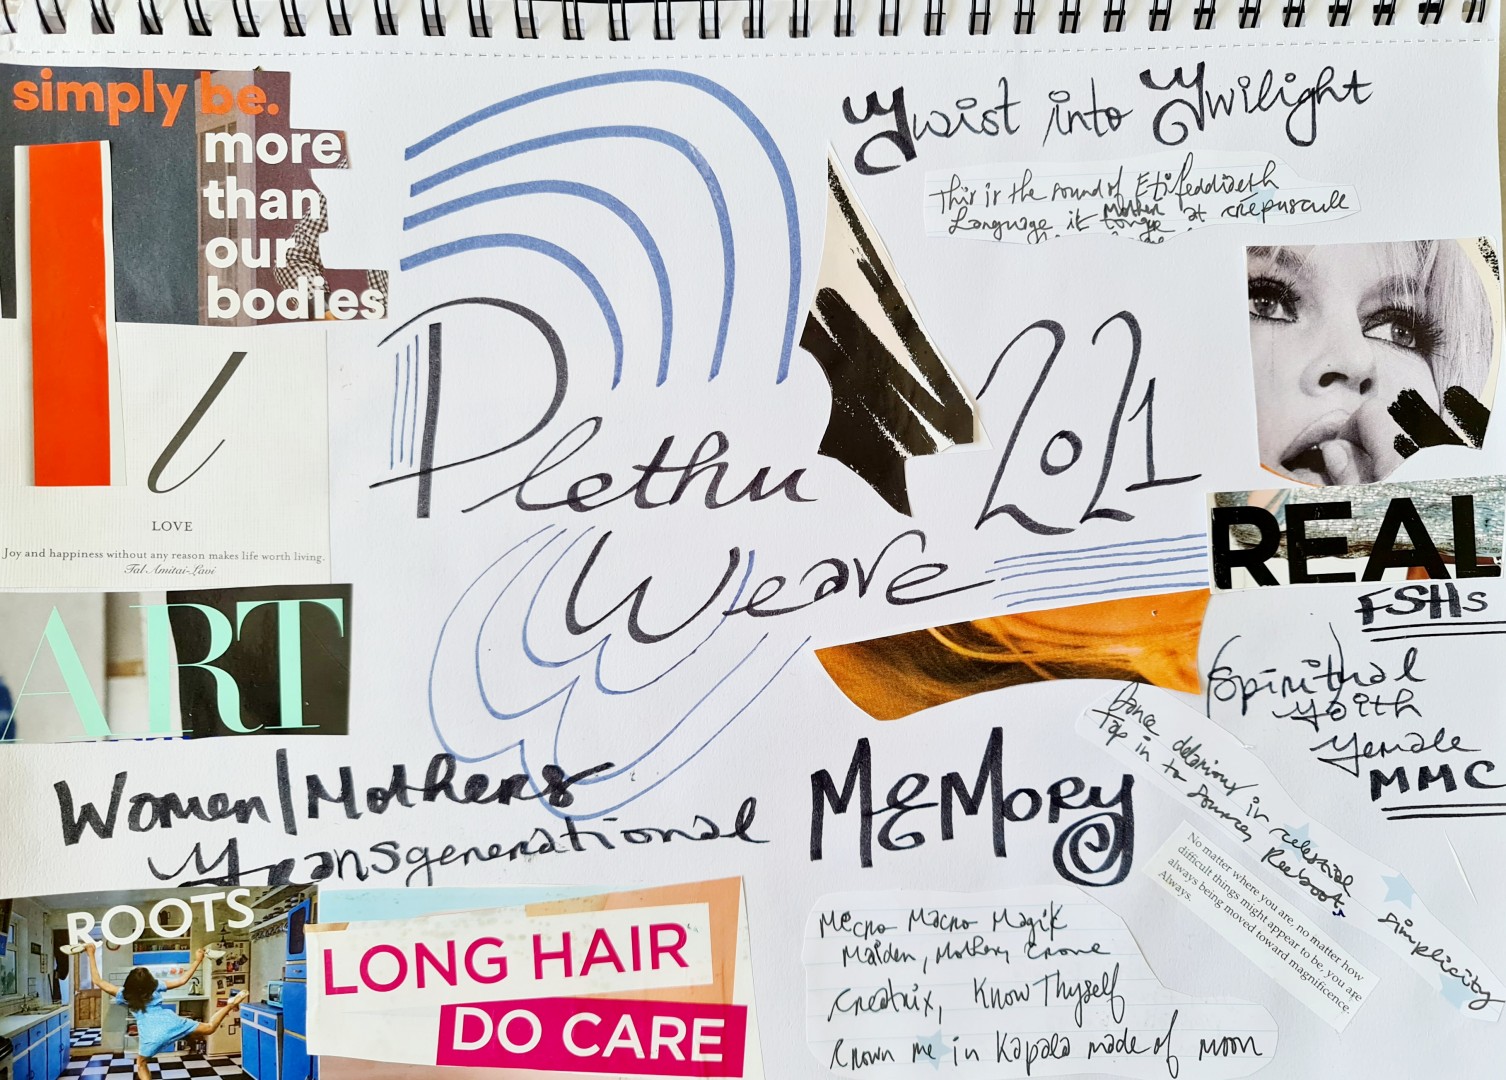 simply be.
more
than
our
bodies
l
LOVE
Joy and happiness without any reason makes life worth living.
Tal Amitai-Lavi
ART
Plethu
Weave
2021
Twist into Twilight
This is the sound of Etifeddiaeth
Language it mother tongue at crépuscule
REAL
FSHs
Spiritual
Youth
Female
MMC
Women/Mothers
Transgenerational
MEMORy
Dance delarious in celestial
Tap in to source, Reeboot.
simplicity
No matter where you are, no matter how
difficult things might appear to be, you are
always being moved toward magnificence.
Always.
ROOTS
LONG HAIR
DO CARE
Micro Macro Magik
Maiden, Mother, Crone
Creatrix, Know Thyself
Crown me in Kapala made of moon